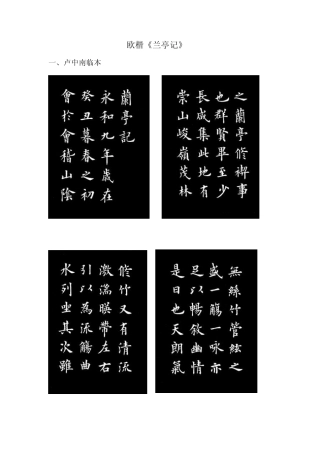 欧楷《兰亭记》
一、卢中南临本
蘭亭記
永和九年歲在
癸丑暮春之初
會於會稽山陰
之蘭亭脩禊事
也群賢畢至少
長咸集此地有
崇山峻嶺茂林
脩竹又有清流
激湍暎帶左右
引以為流觴曲
水列坐其次雖
無絲竹管絃之
盛一觴一詠亦
足以暢敘幽情
是日也天朗氣